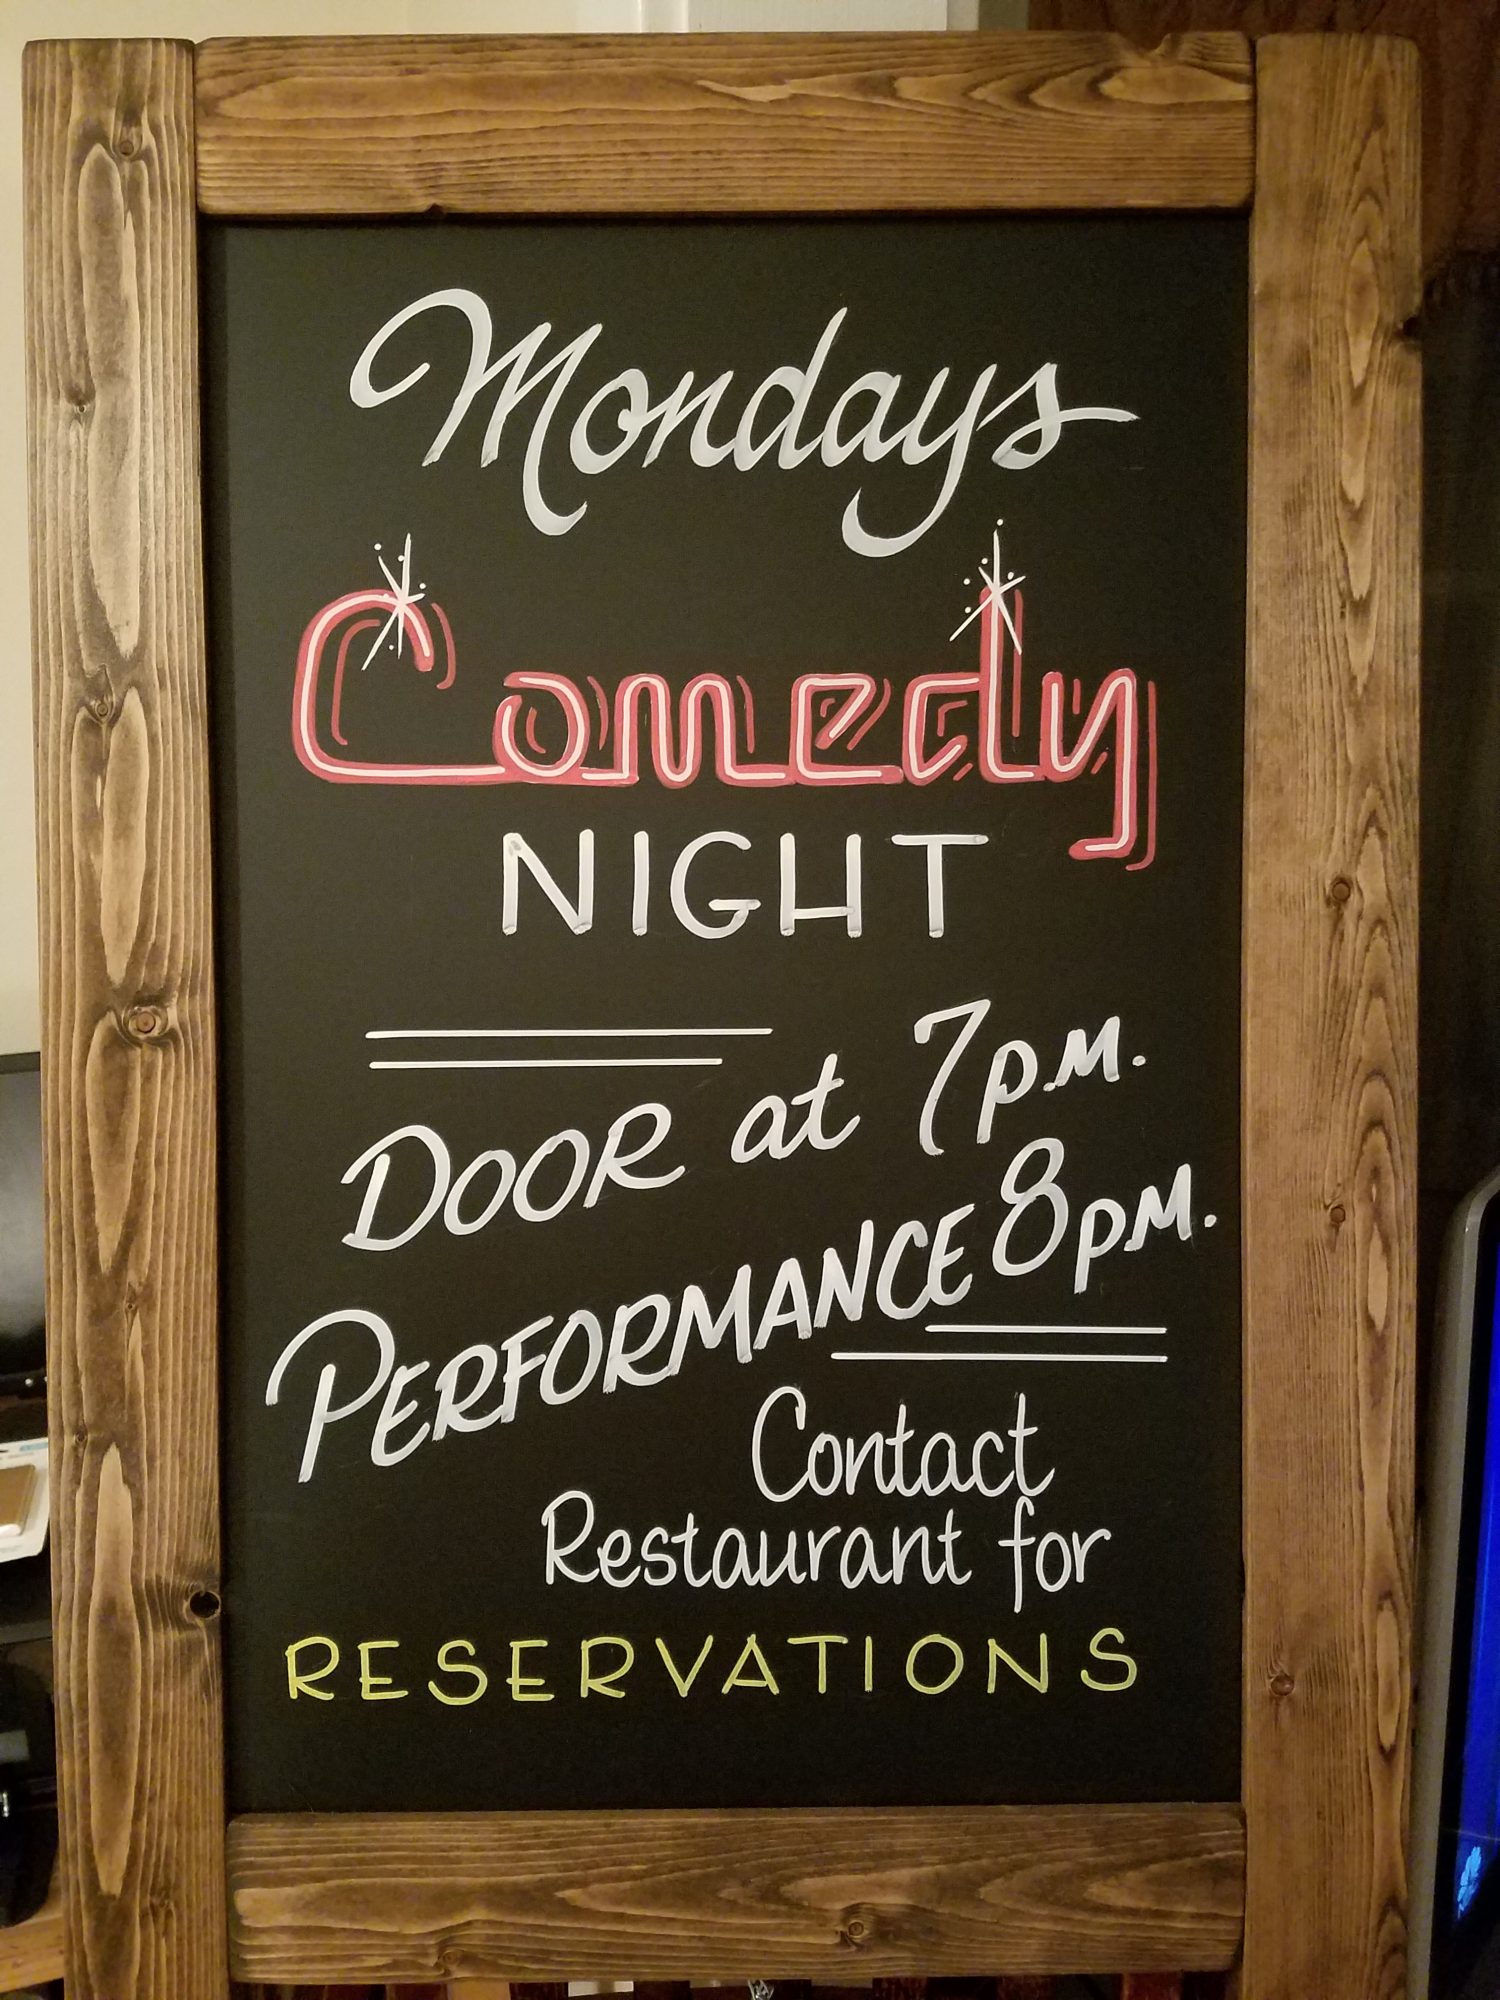 Mondays
Comedy
NIGHT
DOOR at 7p.m.
PERFORMANCE 8pm.
Contact
Restaurant for
RESERVATIONS